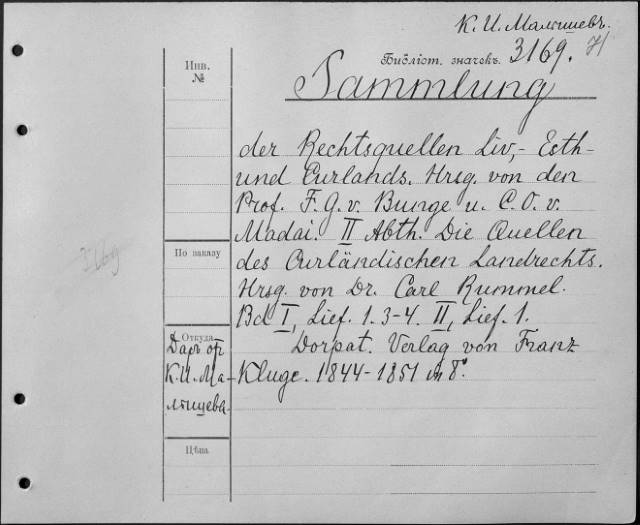 К. И. Малышевъ.
Инв.
№
Библіот. значекъ. 3169.
Sammlung
der Rechtsquellen Liv,- Esth-
und Curlands. Hrsg. von den
Prof. F. G. v. Bunge u. C. O. v.
Madai. II Abth. Die Quellen
des Curländischen Landrechts.
Hrsg. von Dr. Carl Rummel.
Bd I, Lief. 1. 3-4. II, Lief. 1.
Dorpat. Verlag von Franz
Kluge. 1844-1851 in 8°.
3169
По заказу
Откуда
Даръ от
К. И. Ма-
лышева.
Цѣна.